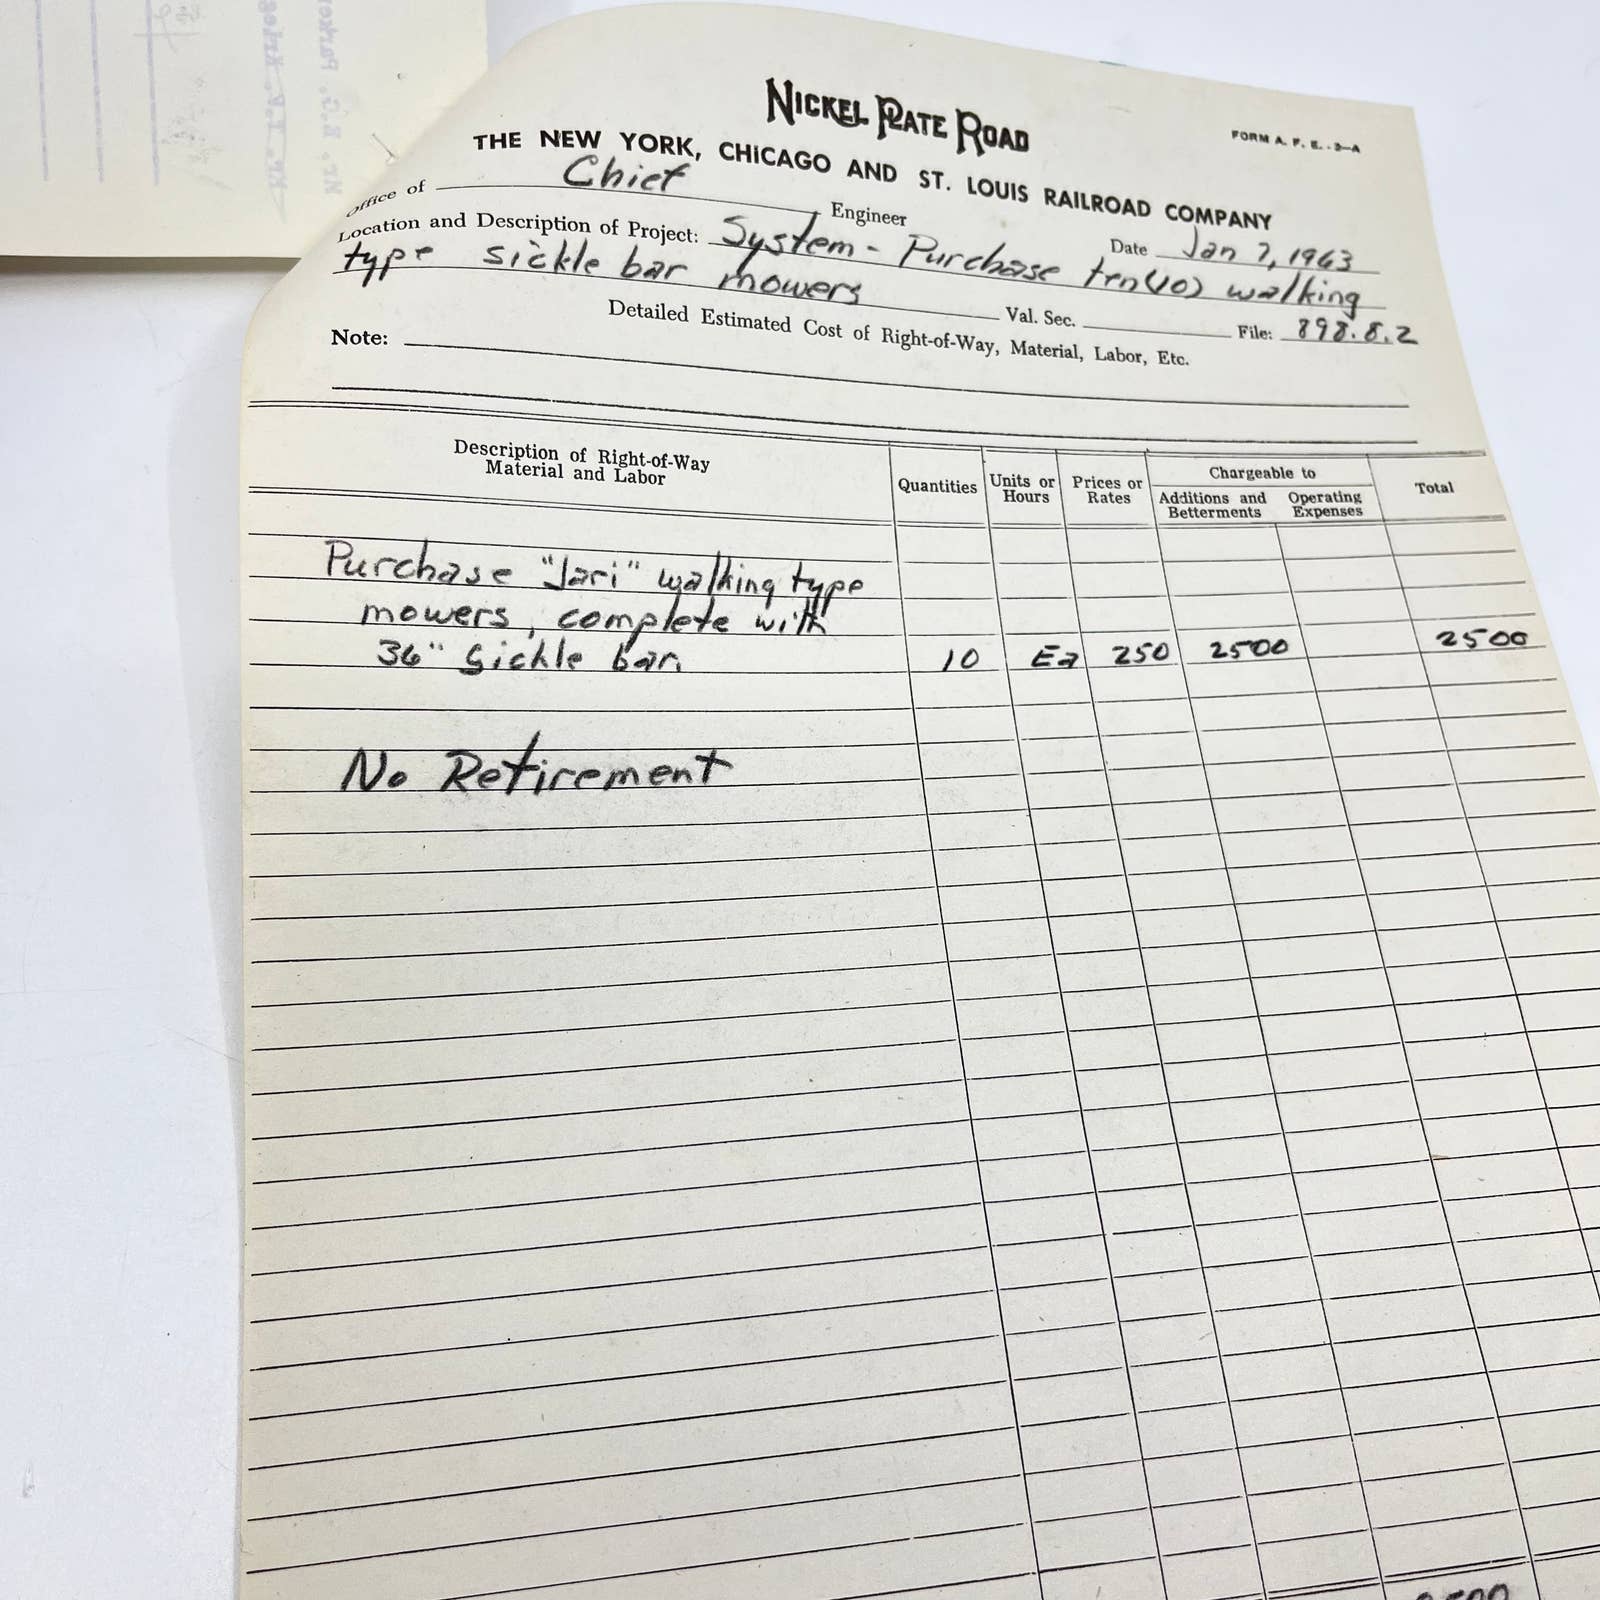 NICKEL PLATE ROAD
FORM A. F. E. - 3—A
THE NEW YORK, CHICAGO AND ST. LOUIS RAILROAD COMPANY
Office of Chief Engineer
Date Jan 7, 1963
Location and Description of Project: System - Purchase ten (10) walking
type sickle bar mowers Val. Sec. File: 898.8.2
Detailed Estimated Cost of Right-of-Way, Material, Labor, Etc.
Note:
Description of Right-of-Way Material and Labor
Quantities
Units or Hours
Prices or Rates
Chargeable to
Additions and Betterments
Operating Expenses
Total
Purchase "Jari" walking type
mowers, complete with
36" Sickle bar. 10 Ea 250 2500 2500
No Retirement